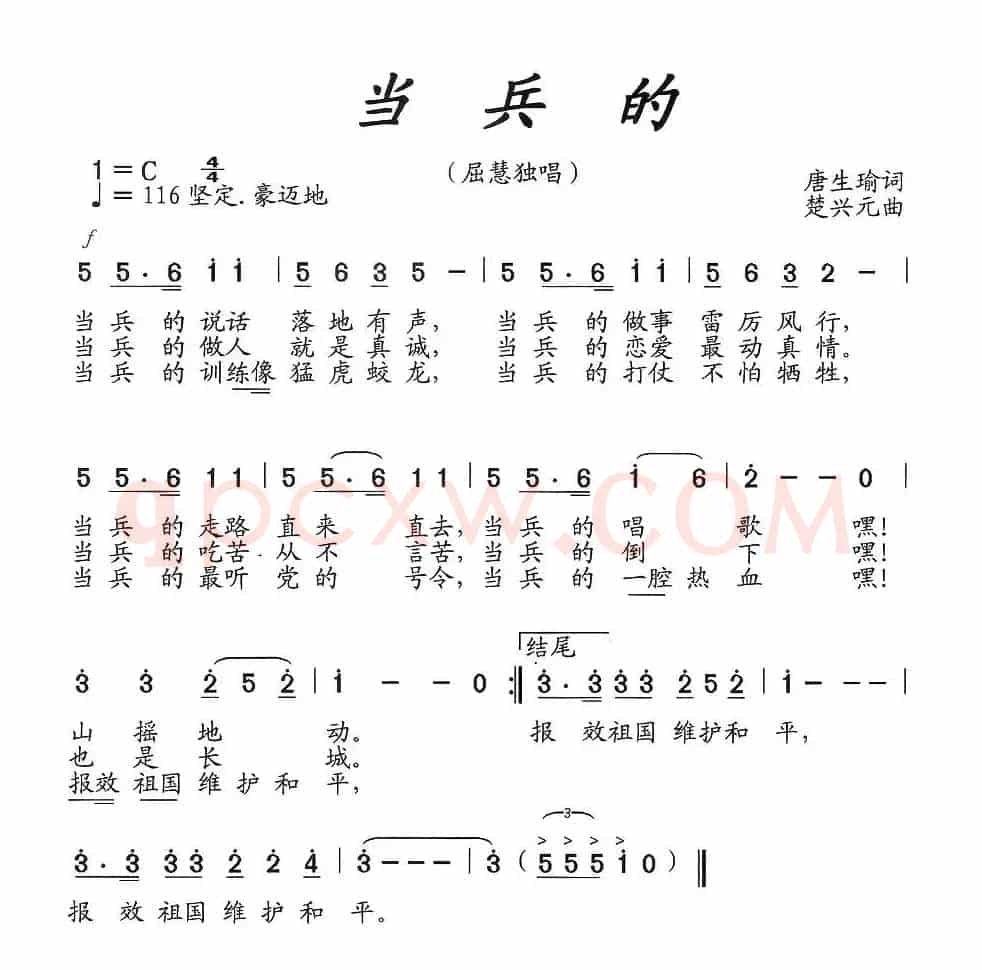 当兵的
1=C 4/4
（屈慧独唱）
唐生瑜词
♩=116 坚定.豪迈地
楚兴元曲
f
5 5·6 i i | 5 6 3 5 - | 5 5·6 i i | 5 6 3 2 - |
当兵的说话 落地有声， 当兵的做事 雷厉风行，
当兵的做人 就是真诚， 当兵的恋爱 最动真情。
当兵的训练像猛虎蛟龙， 当兵的打仗 不怕牺牲，
5 5·6 1 1 | 5 5·6 1 1 | 5 5·6 i 6 | 2̇ - - 0 |
当兵的走路 直来 直去，当兵的唱歌 嘿！
当兵的吃苦 从不 言苦，当兵的倒下 嘿！
当兵的最听 党的 号令，当兵的一腔热血 嘿！
gpcxw.COM
结尾
3̇ 3̇ 2̇ 5 2̇ | i - - 0 :‖ 3̇·3̇ 3̇ 3̇ 2̇ 5 2̇ | i - - |
山摇地动。 报效祖国维护和平，
也是长城。
报效祖国维护和平，
3
3̇·3̇ 3̇ 3̇ 2̇ 2̇ 4̇ | 3̇ - - - | 3̇ （5 5 5 i 0）‖
报效祖国维护和平。